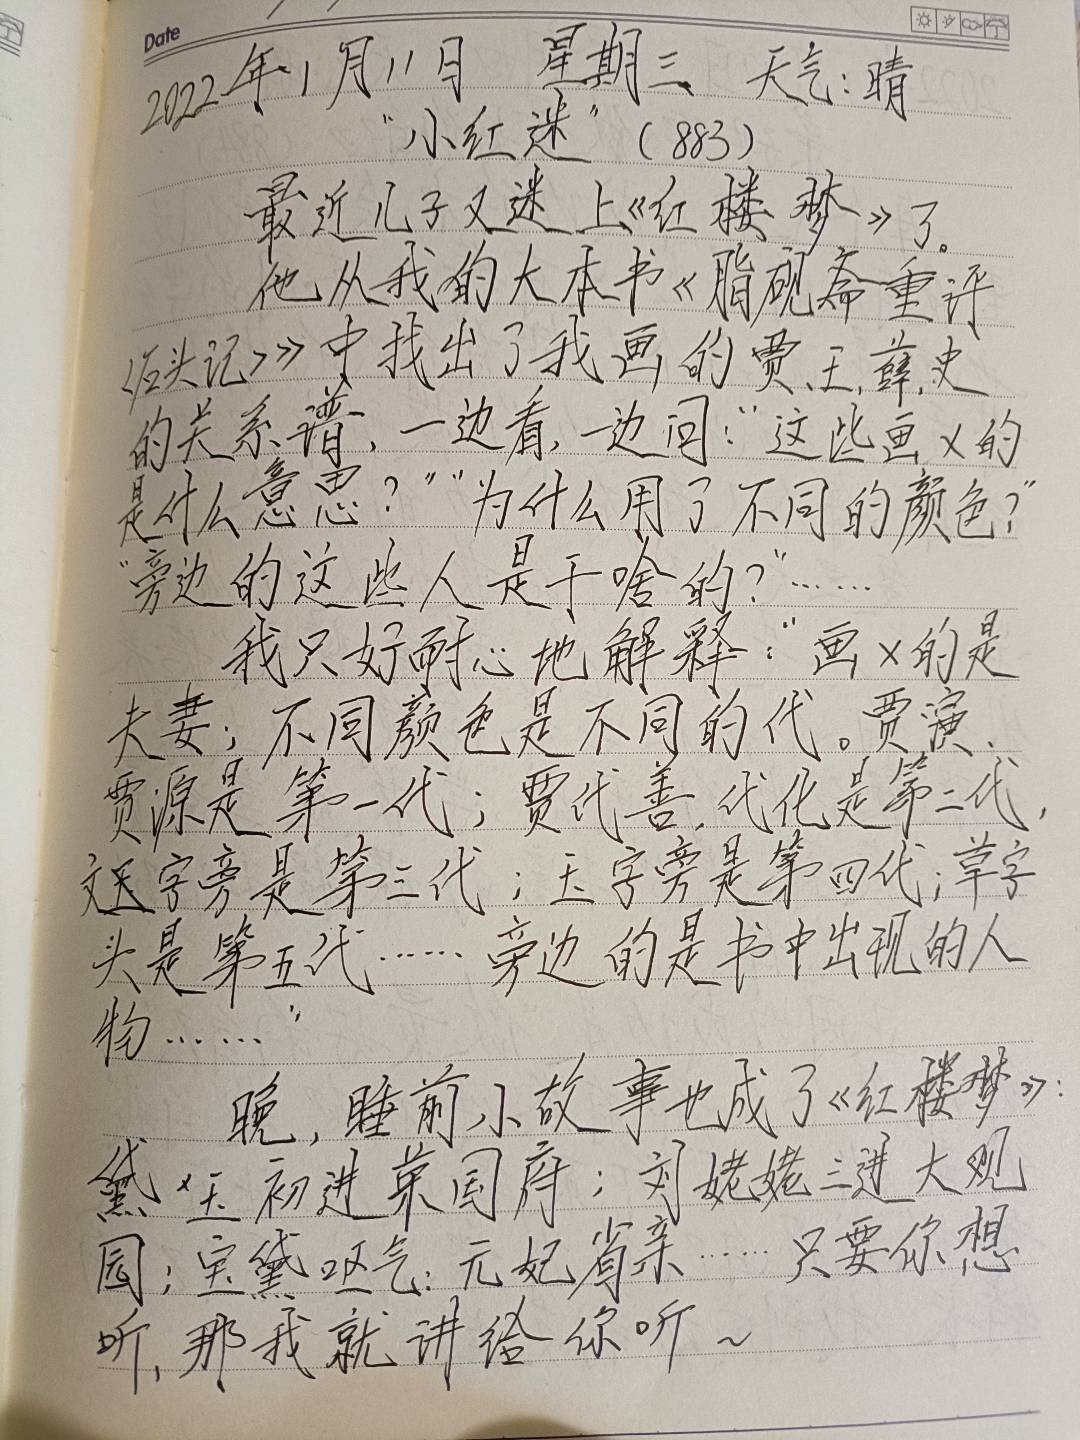 Date
2022年1月11日 星期三 天气:晴
“小红迷”(883)
最近儿子又迷上《红楼梦》了。
他从我的大本书《脂砚斋重评
〈石头记〉》中找出了我画的贾、王、薛、史
的关系谱,一边看,一边问:“这些画×的
是什么意思?”“为什么用了不同的颜色?”
“旁边的这些人是干啥的?”……
我只好耐心地解释:“画×的是
夫妻;不同颜色是不同的代。贾演、
贾源是第一代;贾代善、代化是第二代,
文字旁是第三代;玉字旁是第四代;草字
头是第五代……旁边的是书中出现的人
物……”
晚,睡前小故事也成了《红楼梦》:
黛玉初进荣国府;刘姥姥三进大观
园;宝黛呕气;元妃省亲……只要你想
听,那我就讲给你听~